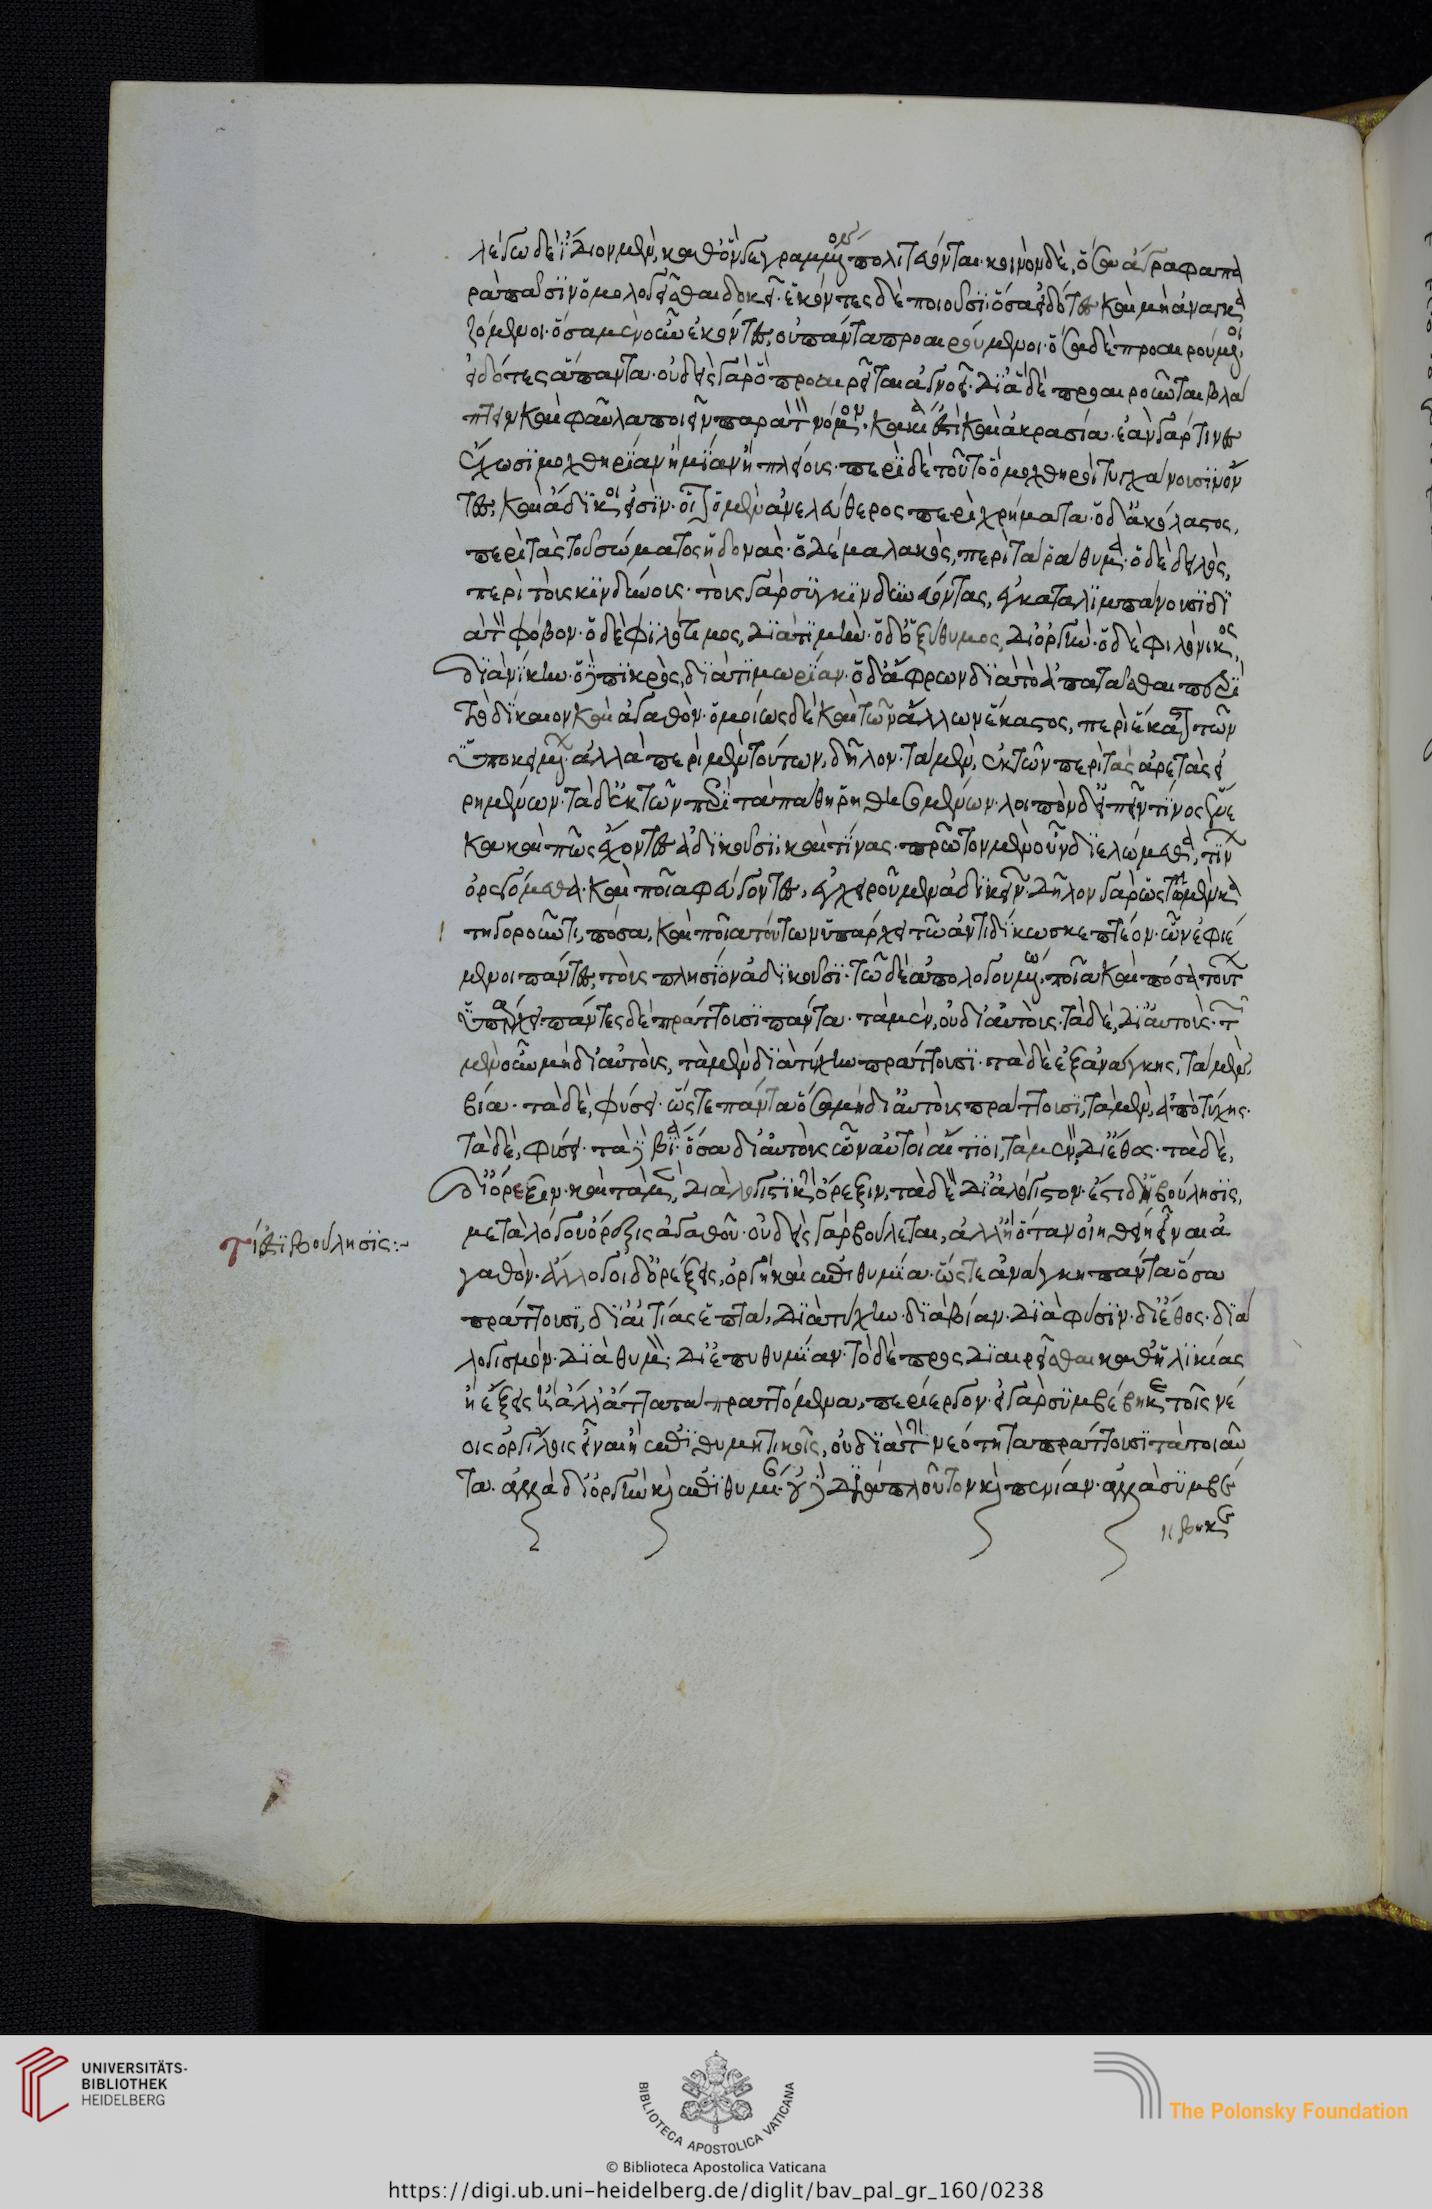 λέγω δὲ ἴδιον μὲν, καθ' ὃν γεγραμμένον πολιτεύονται· κοινὸν δὲ, ὅσα ἄγραφα πα
ρὰ πᾶσιν ὁμολογεῖσθαι δοκεῖ· ἑκόντες δὲ ποιοῦσι· ὅσα εἰδότες καὶ μὴ ἀναγκα
ζόμενοι· ὅσα μὲν οὖν ἑκόντες, οὐ πάντα προαιρούμενοι· ὅσα δὲ προαιρούμενοι,
εἰδότες ἅπαντα· οὐδεὶς γὰρ ὃ προαιρεῖται ἀγνοεῖ· δι' ἃ δὲ προαιροῦνται βλά
πτειν καὶ φαῦλα ποιεῖν παρὰ τὸν νόμον· κακία ἐστὶ καὶ ἀκρασία· ἐὰν γάρ τινες
ἔχωσι μοχθηρίαν ἢ μίαν ἢ πλείους· περὶ δὲ τοῦτο ὃ μοχθηροὶ τυγχάνουσιν ὄν
τες, καὶ ἄδικοι εἰσὶν· οἷον ὁ μὲν ἀνελεύθερος περὶ χρήματα· ὁ δ' ἀκόλαστος,
περὶ τὰς τοῦ σώματος ἡδονάς· ὁ δὲ μαλακὸς, περὶ τὰ ῥάθυμα· ὁ δὲ δειλὸς,
περὶ τοὺς κινδύνους· τοὺς γὰρ συγκινδυνεύοντας, ἐγκαταλιμπάνουσι δι
ὰ τὸν φόβον· ὁ δὲ φιλότιμος, διὰ τιμήν· ὁ δ' ὀξύθυμος, δι' ὀργήν· ὁ δὲ φιλόνικος,
διὰ νίκην· ὁ δὲ πικρὸς, διὰ τιμωρίαν· ὁ δ' ἄφρων διὰ τὸ ἀπατᾶσθαι περὶ
τὸ δίκαιον καὶ ἀγαθόν· ὁμοίως δὲ καὶ τῶν ἄλλων ἕκαστος, περὶ ἕκαστον τῶν
ὑποκειμένων· ἀλλὰ περὶ μὲν τούτων, δῆλον· τὰ μὲν, ἐκ τῶν περὶ τὰς ἀρετὰς εἰ
ρημένων· τὰ δ' ἐκ τῶν περὶ τὰ πάθη ῥηθησομένων· λοιπὸν δ' εἰπεῖν τίνος ἕνε
κα καὶ πῶς ἔχοντες ἀδικοῦσι, καὶ τίνας· πρῶτον μὲν οὖν διελώμεθα, τίνων
ὀρεγόμεθα· καὶ ποῖα φεύγοντες, ἐγχειροῦμεν ἀδικεῖν· δῆλον γὰρ ὡς τῷ μὲν κα
τηγοροῦντι, πόσα, καὶ ποῖα τούτων ὑπάρχει τῷ ἀντιδίκῳ σκεπτέον· ὧν ἐφιέ
μενοι πάντες, τοὺς πλησίον ἀδικοῦσι· τῷ δὲ ἀπολογουμένῳ, ποῖα καὶ πόσα τούτων
ὑπάρχει· πάντες δὲ πράττουσι πάντα· τὰ μὲν, οὐ δι' αὐτούς· τὰ δὲ, δι' αὐτούς· τῶν
μὲν οὖν μὴ δι' αὐτοὺς, τὰ μὲν διὰ τύχην πράττουσι· τὰ δὲ ἐξ ἀνάγκης, τὰ μὲν,
βίᾳ· τὰ δὲ, φύσει· ὥστε πάντα ὅσα μὴ δι' αὐτοὺς πράττουσι, τὰ μὲν, ἀπὸ τύχης·
τὰ δὲ, φύσει· τὰ δὲ βίᾳ· ὅσα δι' αὐτοὺς ὧν αὐτοὶ αἴτιοι, τὰ μὲν, δι' ἔθος· τὰ δὲ,
δι' ὄρεξιν· καὶ τὰ μὲν, διὰ λογιστικὴν ὄρεξιν, τὰ δὲ δι' ἀλόγιστον· ἔστι δ' ἡ βούλησις,
μετὰ λόγου ὄρεξις ἀγαθοῦ· οὐδεὶς γὰρ βούλεται, ἀλλ' ἢ ὅταν οἰηθείη εἶναι ἀ
γαθόν· ἄλογοι δ' ὀρέξεις, ὀργὴ καὶ ἐπιθυμία· ὥστε ἀνάγκη πάντα ὅσα
πράττουσι, δι' αἰτίας ἑπτά, διὰ τύχην· διὰ βίαν· διὰ φύσιν· δι' ἔθος· διὰ
λογισμόν· διὰ θυμὸν· δι' ἐπιθυμίαν· τὸ δὲ προσδιαιρεῖσθαι καθ' ἡλικίας
ἢ ἕξεις ἢ ἄλλ' ἄττα τὰ πραττόμενα, περίεργον· εἰ γὰρ συμβέβηκε τοῖς νέ
οις ὀργίλοις εἶναι ἢ ἐπιθυμητικοῖς, οὐ διὰ τὴν νεότητα πράττουσι τὰ τοιαῦ
τα· ἀλλὰ δι' ὀργὴν καὶ ἐπιθυμίαν· οὐδὲ διὰ πλοῦτον καὶ πενίαν· ἀλλὰ συμβέ
βηκε
τί ἐστι βούλησις:~
UNIVERSITÄTS-
BIBLIOTHEK
HEIDELBERG
BIBLIOTECA APOSTOLICA VATICANA
The Polonsky Foundation
© Biblioteca Apostolica Vaticana
https://digi.ub.uni-heidelberg.de/diglit/bav_pal_gr_160/0238